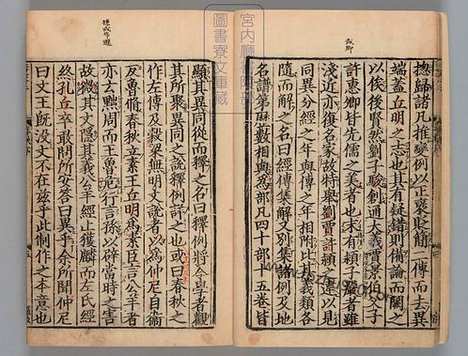 揔歸諸凡推變例以正褒貶簡二傳而去異
端蓋丘明之志也其有疑錯則備論而闕之
以俟後賢然劉子駿創通大義賈景伯父子
許惠卿皆先儒之美者也末有潁子嚴者雖
淺近亦復名家故特舉劉賈許潁之違以見
同異分經之年與傳之年相附比其義類各
隨而解之名曰經傳集解又別集諸例及地
名譜第曆數相與爲部凡四十部十五卷皆
顯其異同從而釋之名曰釋例將令學者觀
其所聚異同之說釋例詳之也或曰春秋之
作左傳及穀梁無明文說者以爲仲尼自衛
反魯脩春秋立素王丘明爲素臣言公羊者
亦云黜周而王魯危行言孫以辟當時之害
故微其文隱其義公羊經止獲麟而左氏經
終孔丘卒敢問所安荅曰異乎余所聞仲尼
曰文王旣沒文不在兹乎此制作之本意也
宮內
圖書寮文庫藏